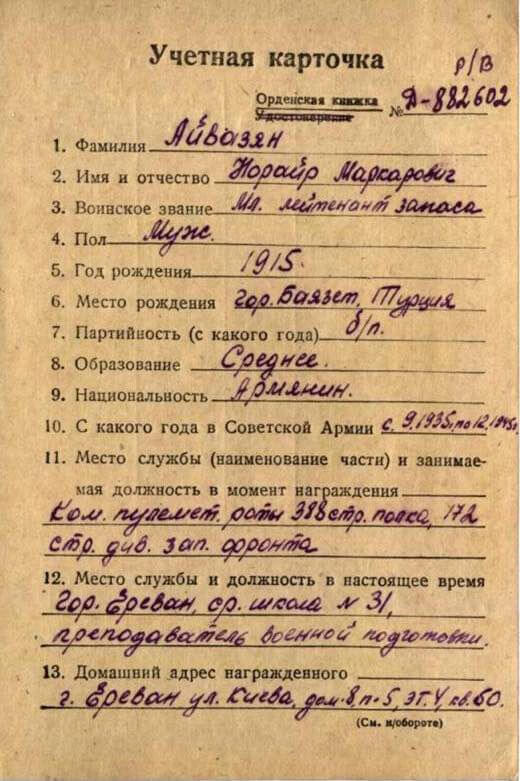 Учетная карточка
Р/В
Орденская книжка
Удостоверение № Д-882602
1. Фамилия Айвазян
2. Имя и отчество Норайр Маркарович
3. Воинское звание Мл. лейтенант запаса
4. Пол Муж.
5. Год рождения 1915.
6. Место рождения гор. Баязет, Турция
7. Партийность (с какого года) б/п.
8. Образование Среднее.
9. Национальность Армянин.
10. С какого года в Советской Армии с 9.1935г. по 12.1945г.
11. Место службы (наименование части) и занимае-
мая должность в момент награждения
Ком. пулемет. роты 388 стр. полка, 172
стр. див. зап. фронта
12. Место службы и должность в настоящее время
Гор. Ереван, ср. школа № 31,
преподаватель военной подготовки.
13. Домашний адрес награжденного
г. Ереван ул. Киева, дом 8, п-5, эт. V, кв. 60.
(См. н/обороте)